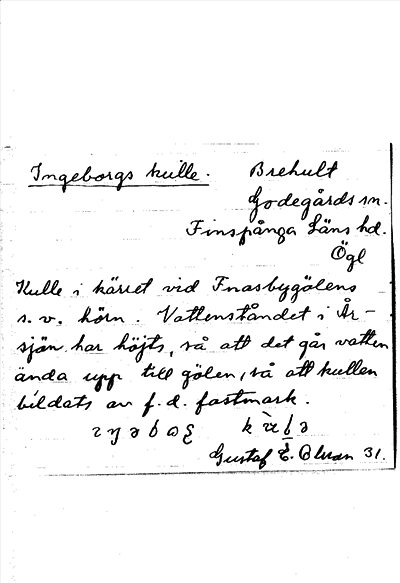 Ingeborgs kulle. Brehult
Godegårds sn.
Finspånga Läns hd.
Ögl
Kulle i kärret vid Fnasbygölens
s. v. hörn. Vattenståndet i År-
sjön har höjts, så att det går vatten
ända upp till gölen, så att kullen
bildats av f. d. fastmark.
Gustaf E. 31.